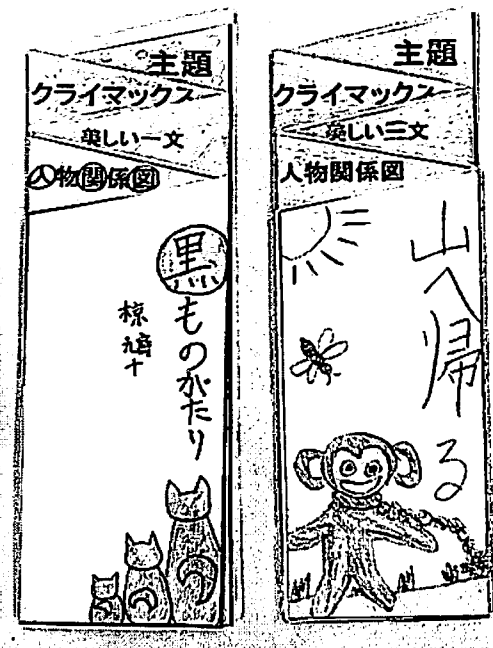 主題
クライマックス
美しい一文
人物関係図
黒ものがたり
椋鳩十
主題
クライマックス
美しい三文
人物関係図
山へ帰る